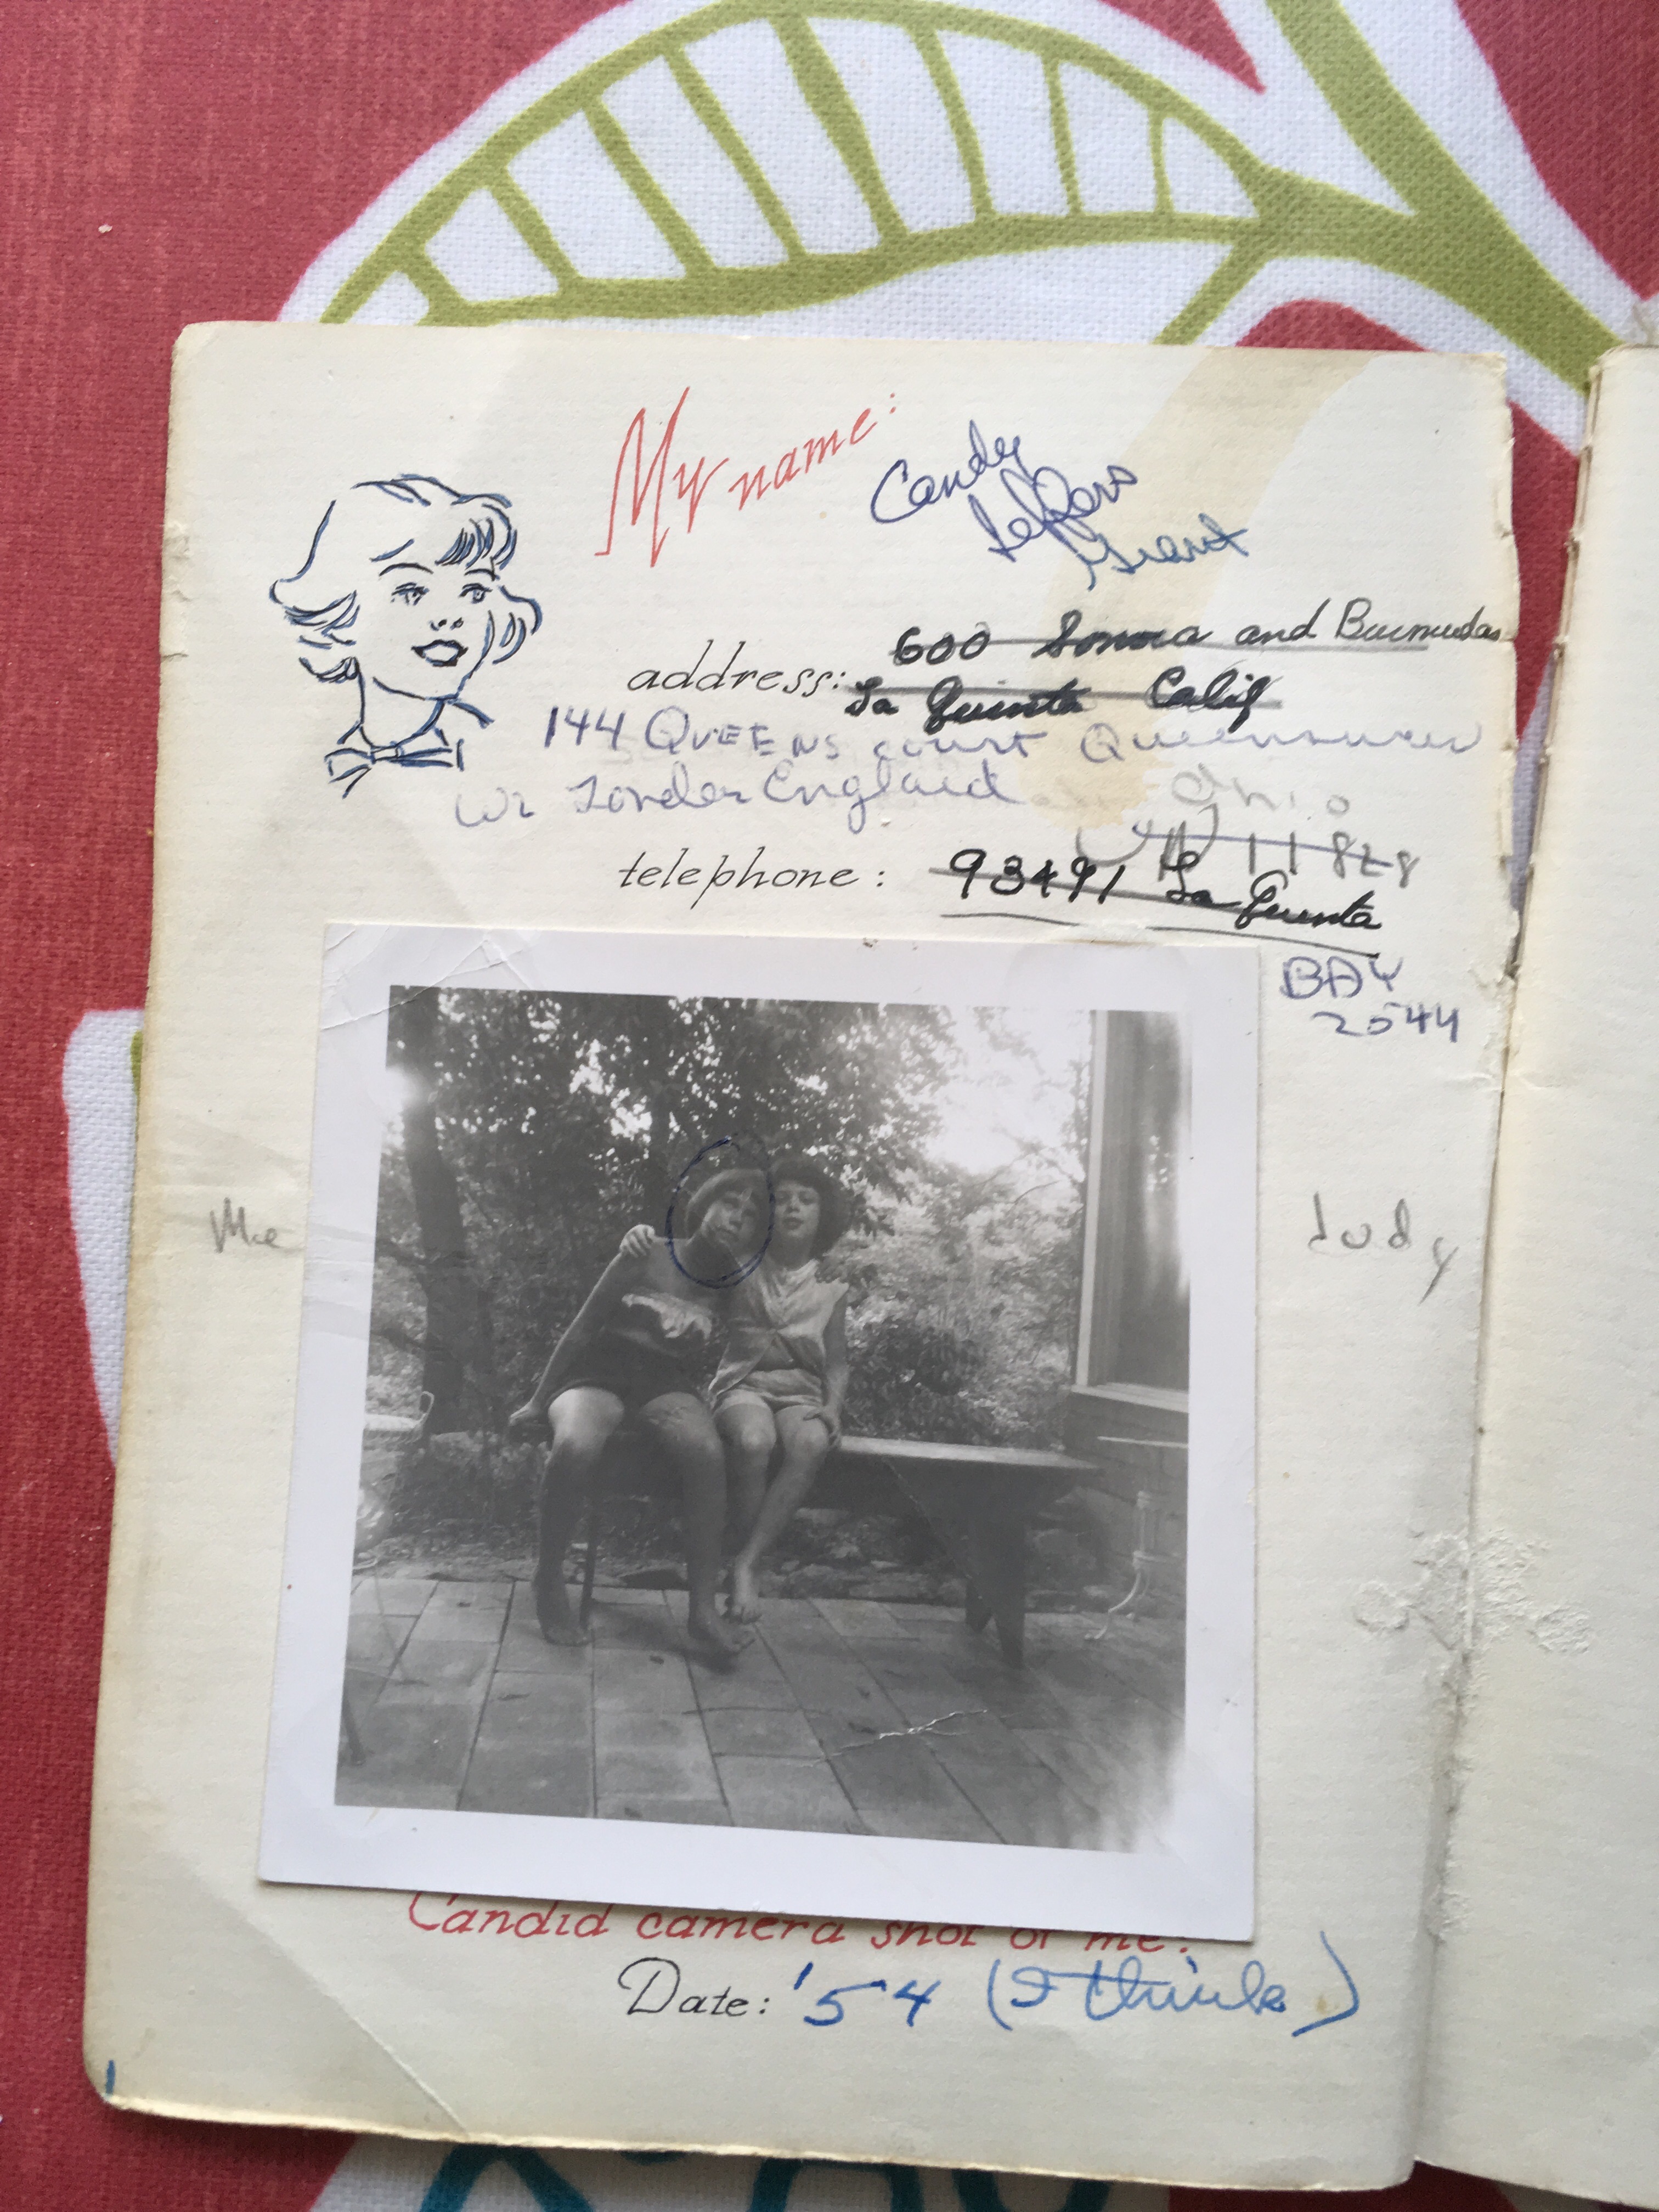 My name:
Candy
Jeffers
Grant
address:
600 Sonora and Burmudas
La Quinta Calif
144 QUEENS court Queensway
W2 London England
Ohio
11828
telephone: 93491 La Quinta
BAY
2544
Me
Judy
Candid camera shot of me:
Date: '54 (I think)